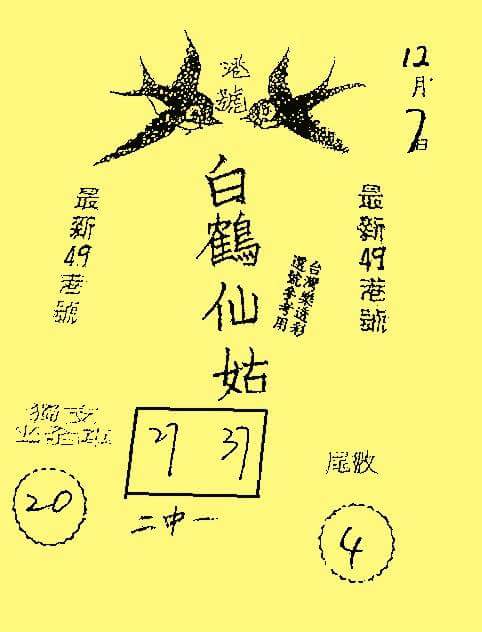 港號
12月7日
白鶴仙姑
最新49港號
最新49港號
台灣樂透彩
選號參考用
獨支
20
27 37
二中一
尾数
4